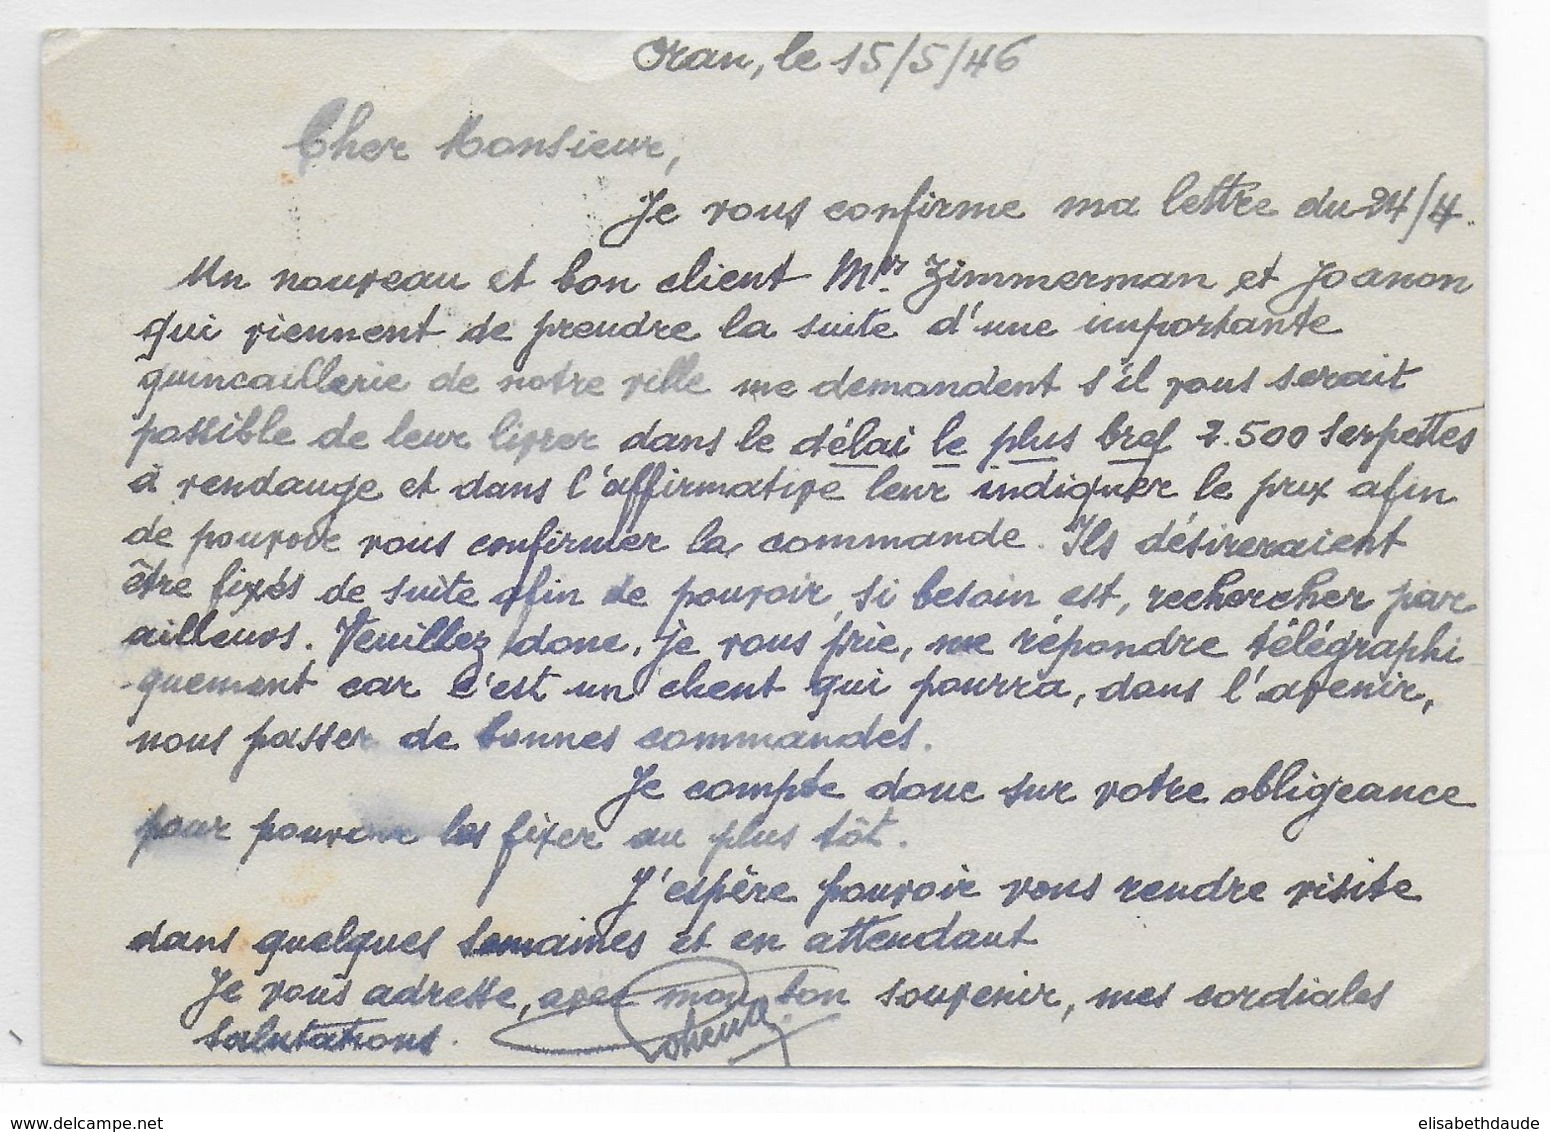 Oran, le 15/5/46
Cher Monsieur,
Je vous confirme ma lettre du 24/4.
Un nouveau et bon client Mrs Zimmerman et Joanon
qui viennent de prendre la suite d'une importante
quincaillerie de notre ville me demandent s'il vous serait
possible de leur livrer dans le délai le plus bref 2.500 serpettes
à vendange et dans l'affirmative leur indiquer le prix afin
de pouvoir vous confirmer la commande. Ils désireraient
être fixés de suite afin de pouvoir, si besoin est, rechercher par
ailleurs. Veuillez donc, je vous prie, me répondre télégraphi
-quement car c'est un client qui pourra, dans l'avenir,
nous passer de bonnes commandes.
Je compte donc sur votre obligeance
pour pouvoir les fixer au plus tôt.
J'espère pouvoir vous rendre visite
dans quelques semaines et en attendant
Je vous adresse, avec mon bon souvenir, mes cordiales
salutations.
elisabethdaude